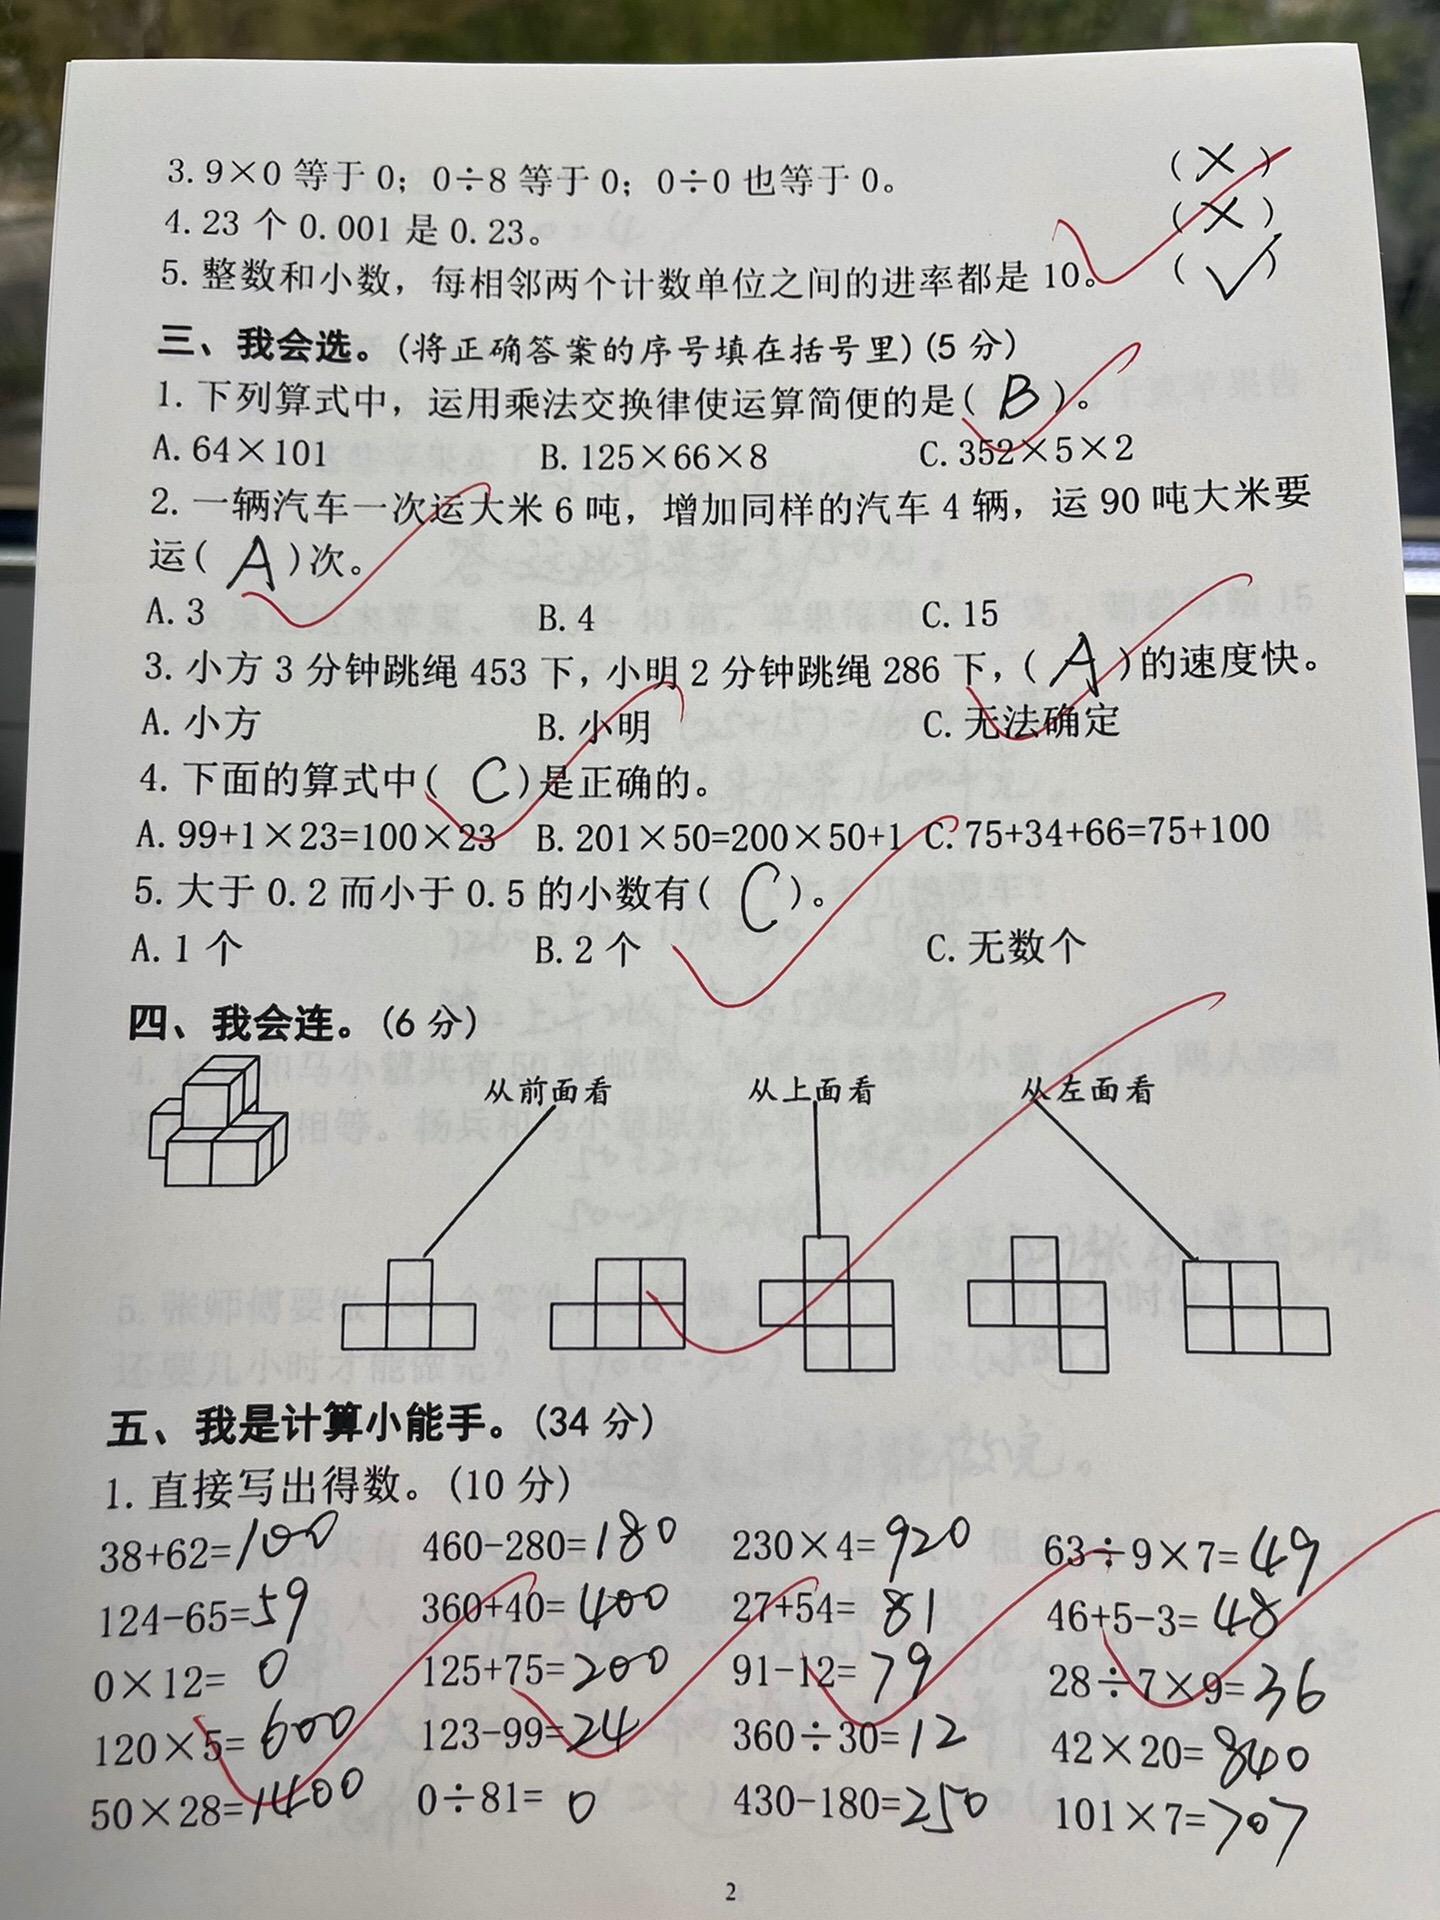 3. 9×0 等于 0；0÷8 等于 0；0÷0 也等于 0。 (×)
4. 23 个 0.001 是 0.23。 (×)
5. 整数和小数，每相邻两个计数单位之间的进率都是 10。 (✓)
三、我会选。(将正确答案的序号填在括号里)(5 分)
1. 下列算式中，运用乘法交换律使运算简便的是( B )。
A. 64×101 B. 125×66×8 C. 352×5×2
2. 一辆汽车一次运大米 6 吨，增加同样的汽车 4 辆，运 90 吨大米要
运( A )次。
A. 3 B. 4 C. 15
3. 小方 3 分钟跳绳 453 下，小明 2 分钟跳绳 286 下，( A )的速度快。
A. 小方 B. 小明 C. 无法确定
4. 下面的算式中( C )是正确的。
A. 99+1×23=100×23 B. 201×50=200×50+1 C. 75+34+66=75+100
5. 大于 0.2 而小于 0.5 的小数有( C )。
A. 1 个 B. 2 个 C. 无数个
四、我会连。(6 分)
从前面看 从上面看 从左面看
五、我是计算小能手。(34 分)
1. 直接写出得数。(10 分)
38+62=100 460-280=180 230×4=920 63÷9×7=49
124-65=59 360+40=400 27+54=81 46+5-3=48
0×12=0 125+75=200 91-12=79 28÷7×9=36
120×5=600 123-99=24 360÷30=12 42×20=840
50×28=1400 0÷81=0 430-180=250 101×7=707
2